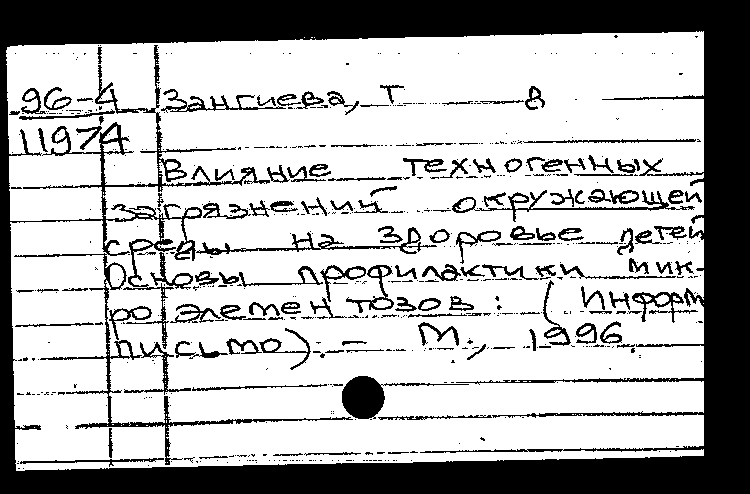 96-4 Зангиева, Т в
11974
Влияние техногенных
загрязнений окружающей
среды на здоровье детей
Основы профилактики мик-
роэлементозов: (Информ
письмо). - М., 1996.